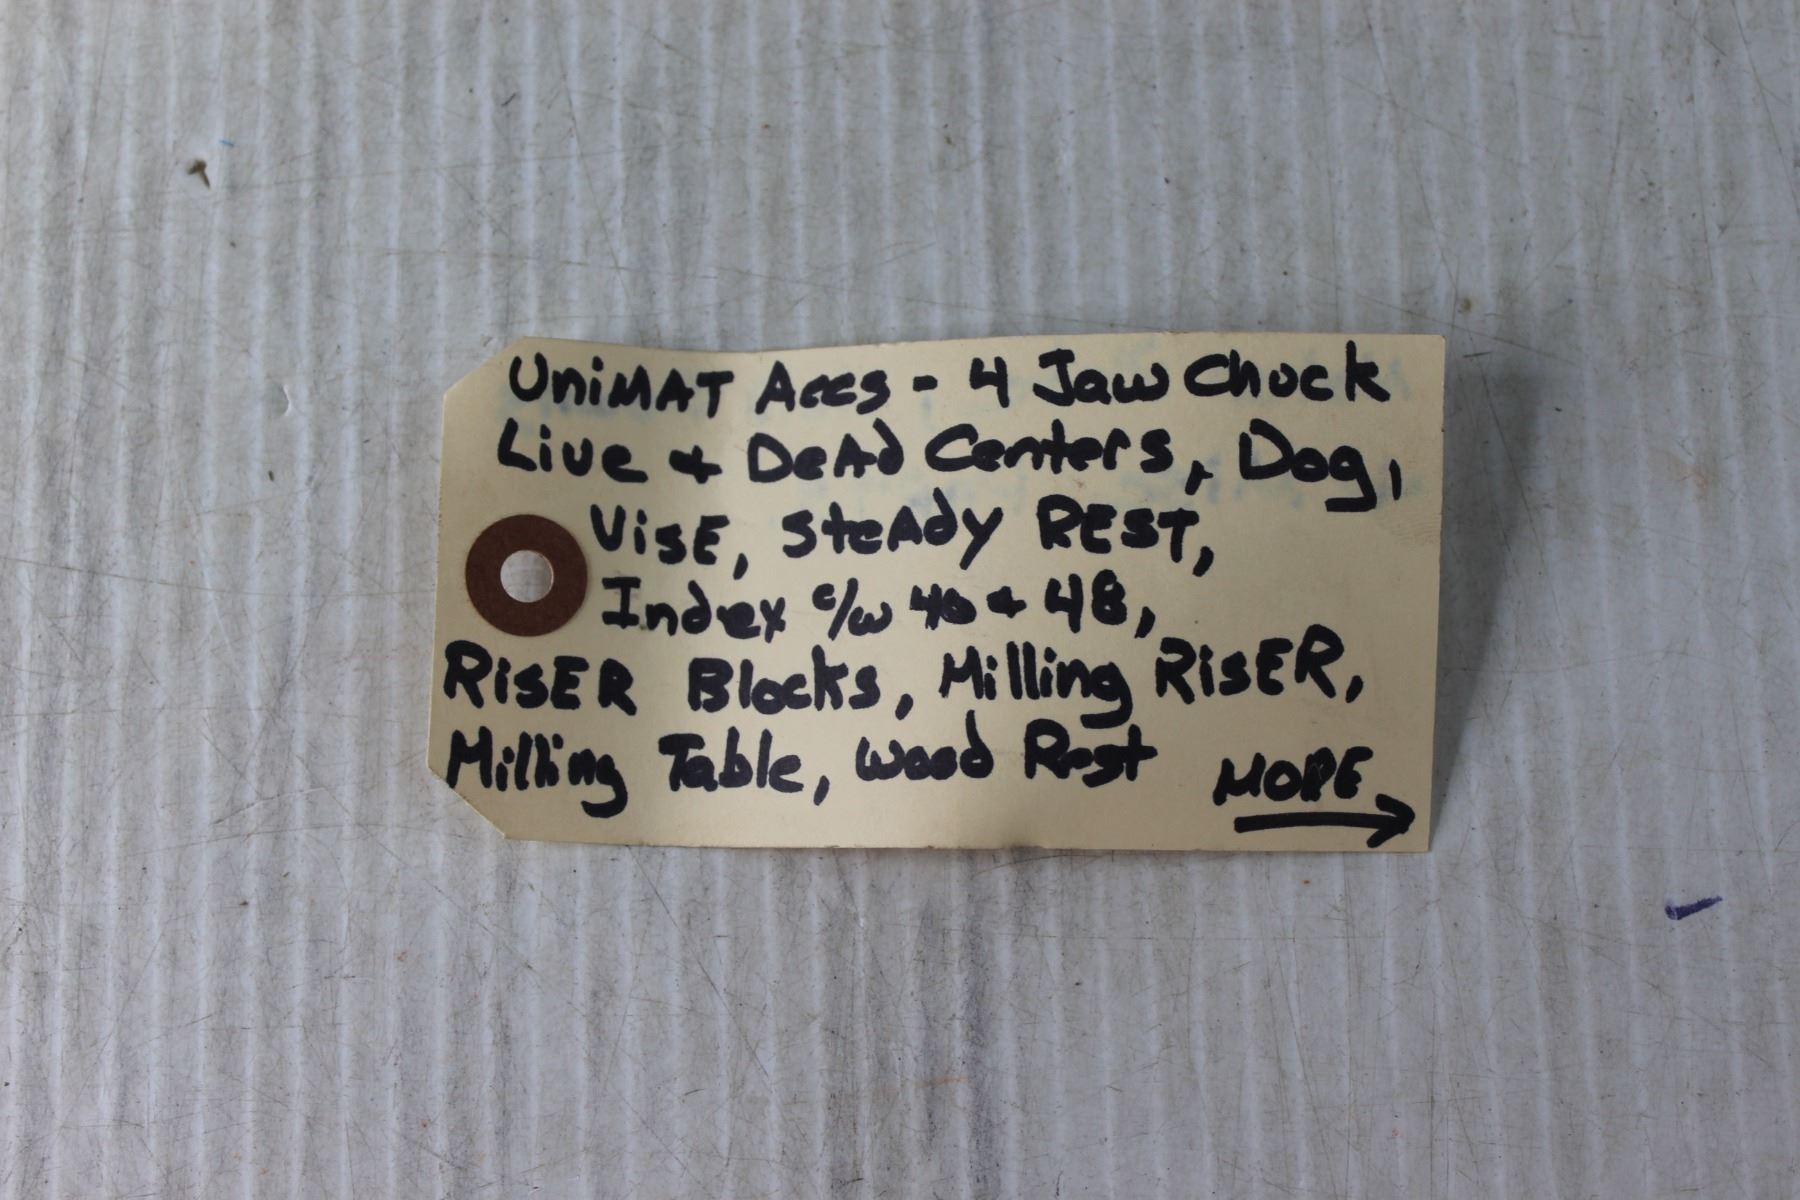 UniMAT Accs - 4 Jaw Chuck
Live & DeAd Centers, Dog,
VisE, SteAdy REST,
Index c/w 40 & 48,
RisER Blocks, Milling RisER,
Milling Table, Wood Rest
MORE →